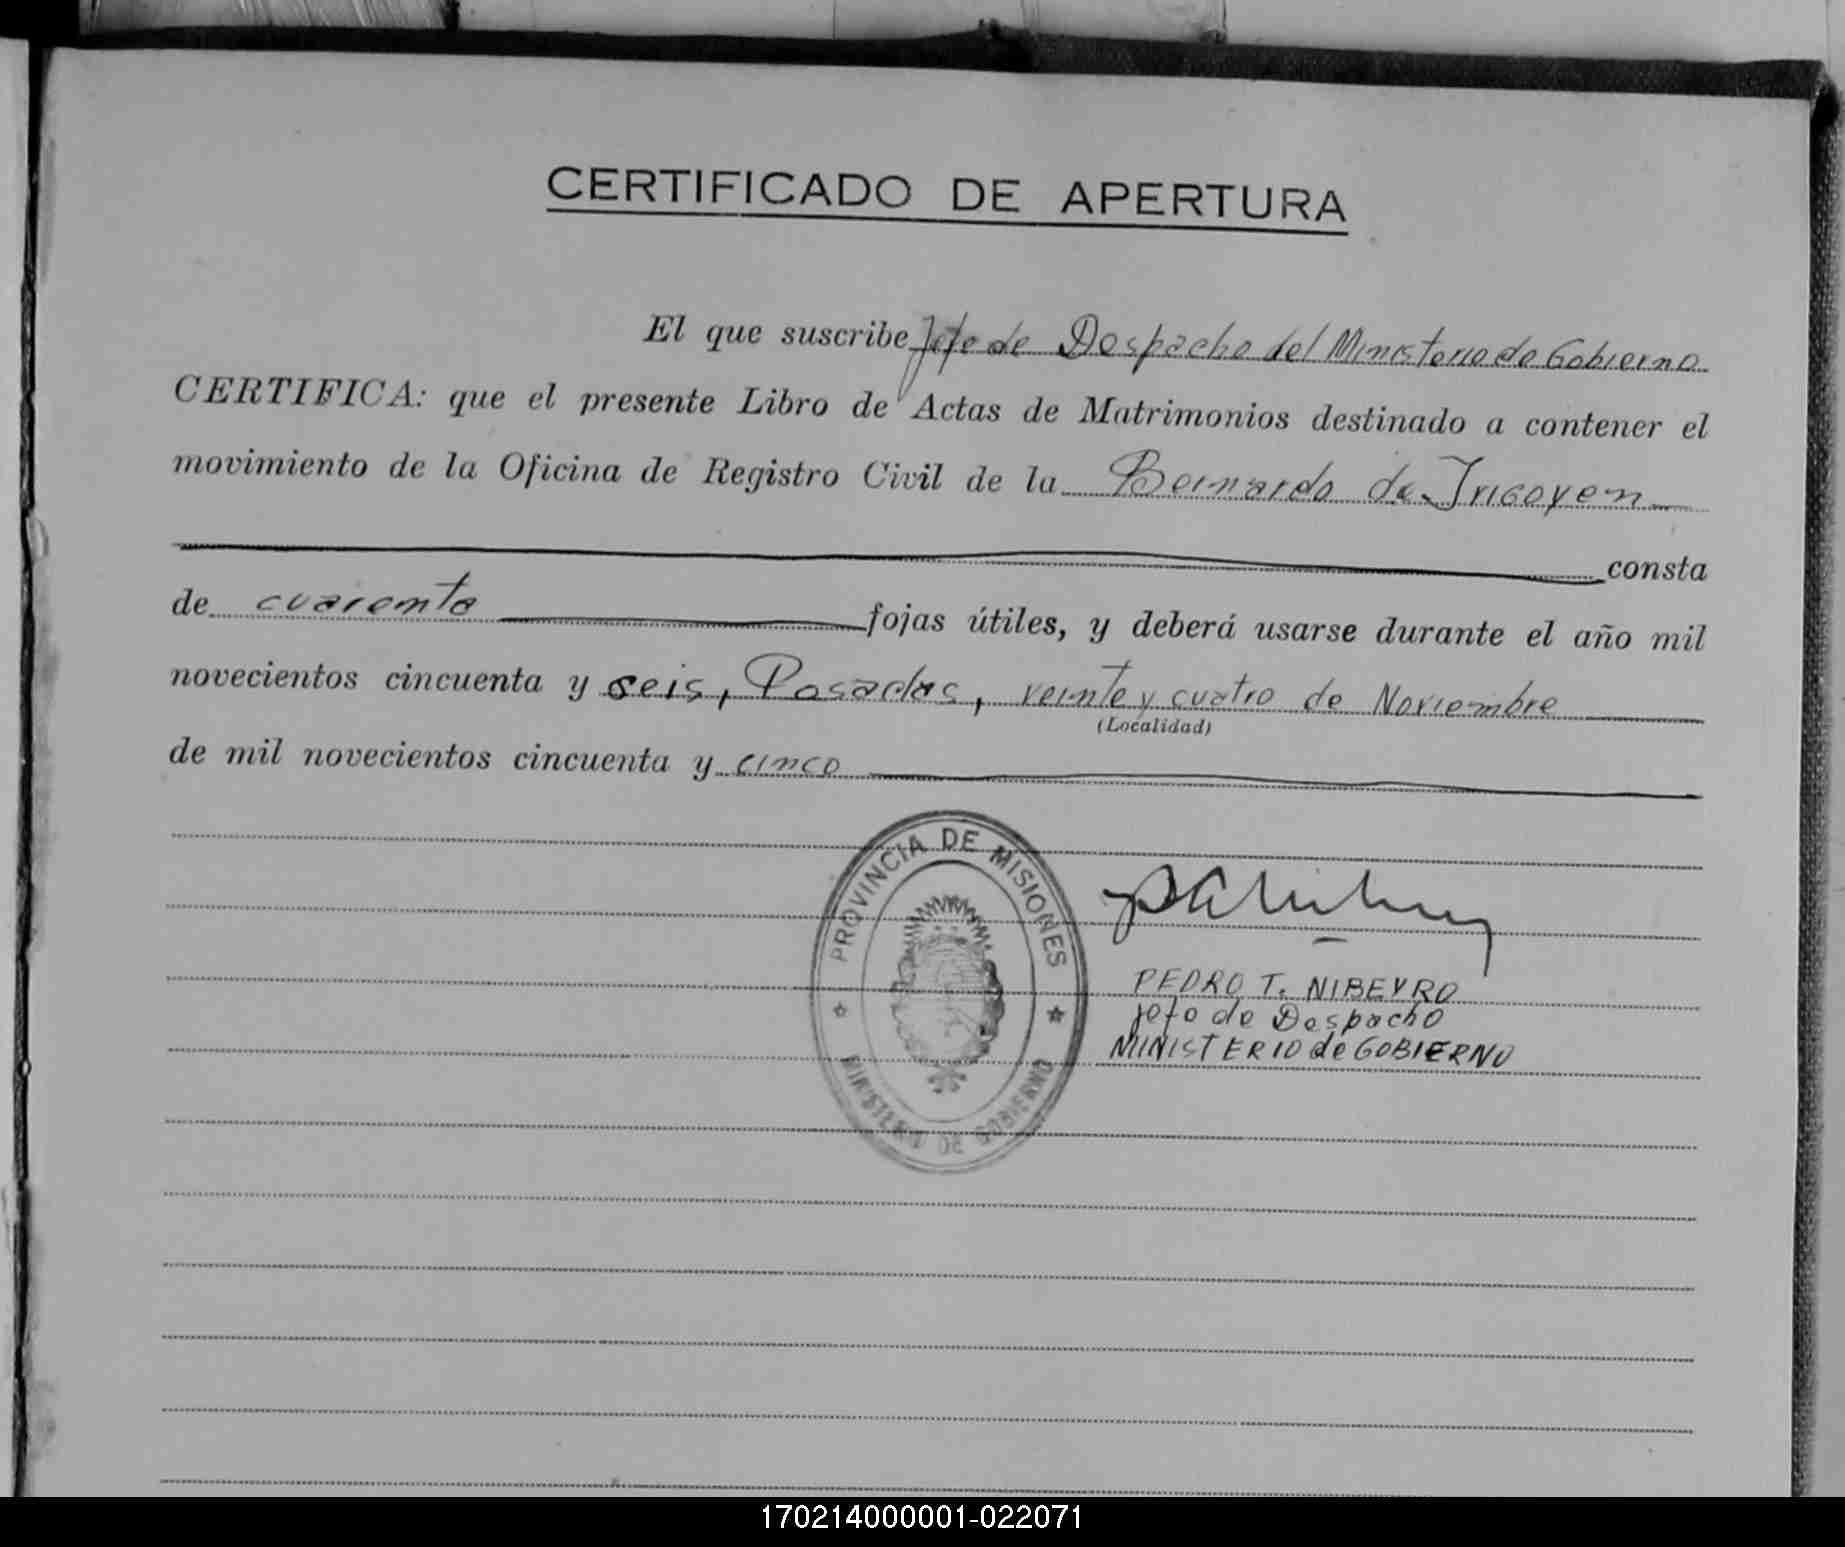 CERTIFICADO DE APERTURA
El que suscribe Jefe de Despacho del Ministerio de Gobierno
CERTIFICA: que el presente Libro de Actas de Matrimonios destinado a contener el
movimiento de la Oficina de Registro Civil de la Bernardo de Irigoyen
consta
de cuarenta fojas útiles, y deberá usarse durante el año mil
novecientos cincuenta y seis, Posadas, veinte y cuatro de Noviembre
(Localidad)
de mil novecientos cincuenta y cinco
PROVINCIA DE MISIONES
MINISTERIO DE GOBIERNO
PEDRO T. NIBEYRO
Jefe de Despacho
MINISTERIO de GOBIERNO
170214000001-022071